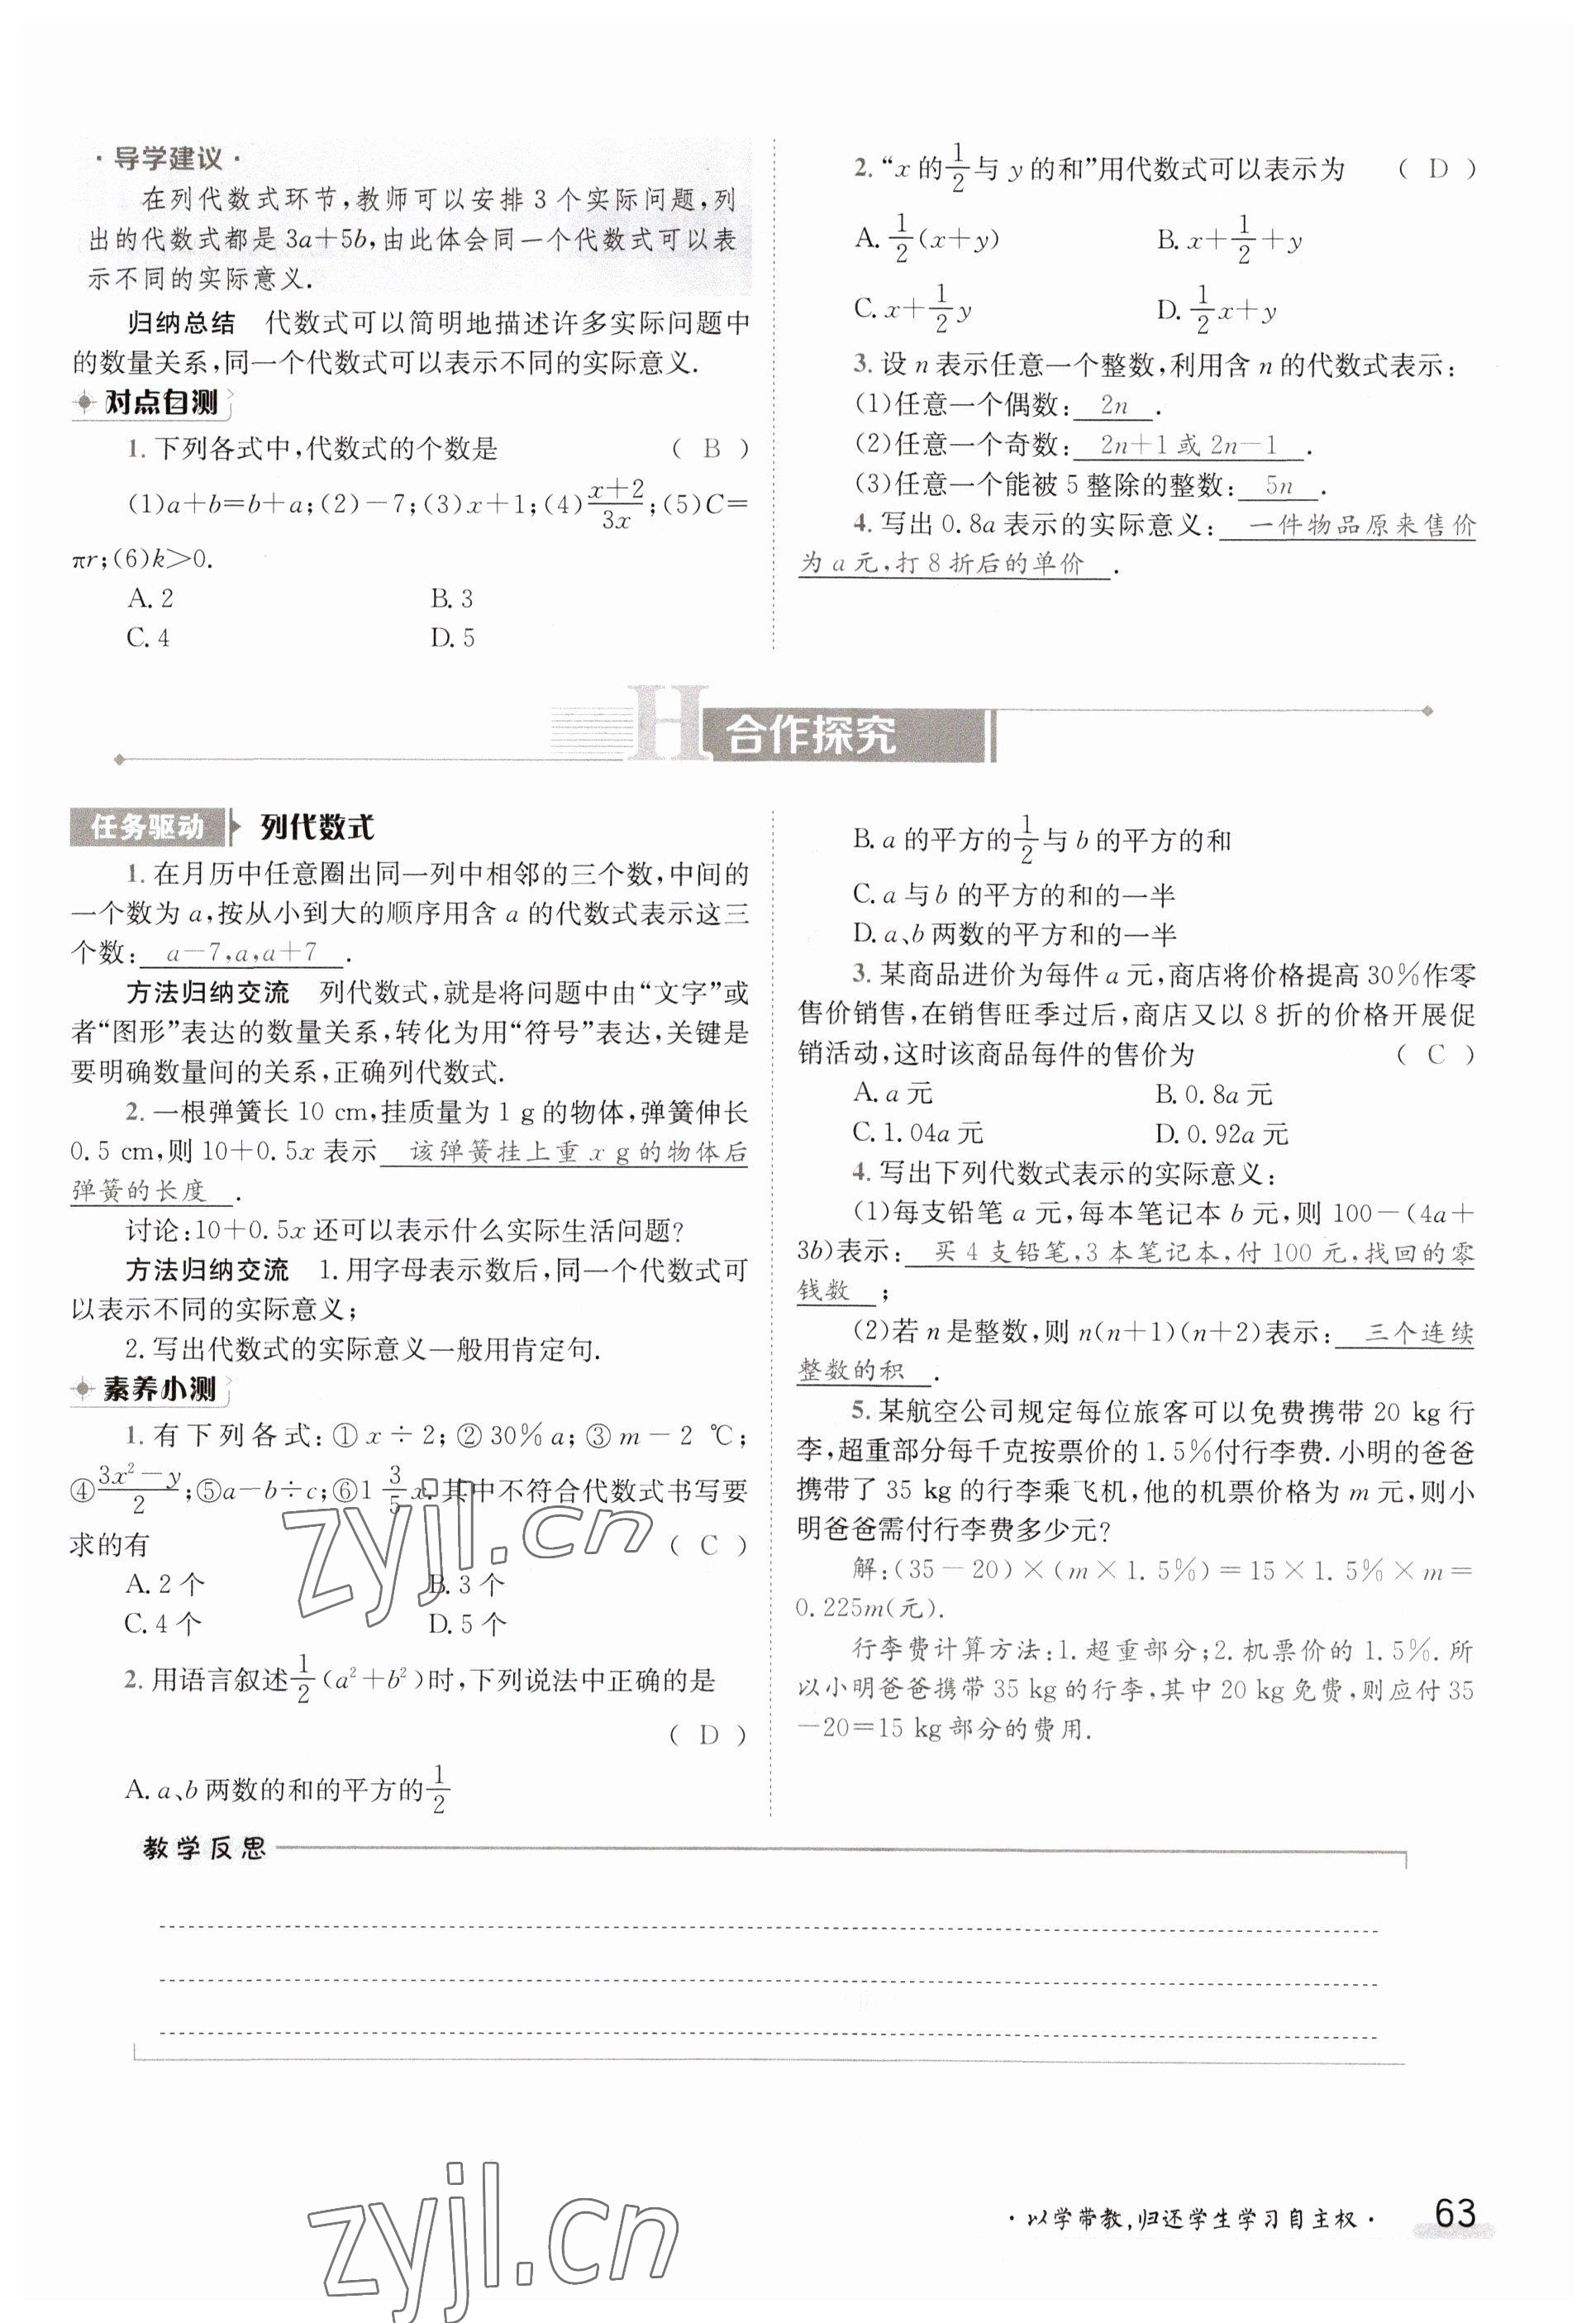 ·导学建议·
在列代数式环节,教师可以安排3个实际问题,列
出的代数式都是3a+5b,由此体会同一个代数式可以表
示不同的实际意义.
归纳总结 代数式可以简明地描述许多实际问题中
的数量关系,同一个代数式可以表示不同的实际意义.
对点自测
1. 下列各式中,代数式的个数是 ( B )
(1)a+b=b+a;(2)-7;(3)x+1;(4)\frac{x+2}{3x};(5)C=
πr;(6)k>0.
A. 2 B. 3
C. 4 D. 5
2. “x的\frac{1}{2}与y的和”用代数式可以表示为 ( D )
A. \frac{1}{2}(x+y) B. x+\frac{1}{2}+y
C. x+\frac{1}{2}y D. \frac{1}{2}x+y
3. 设n表示任意一个整数,利用含n的代数式表示:
(1)任意一个偶数: 2n .
(2)任意一个奇数: 2n+1或2n-1 .
(3)任意一个能被5整除的整数: 5n .
4. 写出0.8a表示的实际意义: 一件物品原来售价
为a元,打8折后的单价 .
H 合作探究
任务驱动 列代数式
1. 在月历中任意圈出同一列中相邻的三个数,中间的
一个数为a,按从小到大的顺序用含a的代数式表示这三
个数: a-7,a,a+7 .
方法归纳交流 列代数式,就是将问题中由“文字”或
者“图形”表达的数量关系,转化为用“符号”表达,关键是
要明确数量间的关系,正确列代数式.
2. 一根弹簧长10 cm,挂质量为1 g的物体,弹簧伸长
0.5 cm,则10+0.5x表示 该弹簧挂上重x g的物体后
弹簧的长度 .
讨论:10+0.5x还可以表示什么实际生活问题?
方法归纳交流 1. 用字母表示数后,同一个代数式可
以表示不同的实际意义;
2. 写出代数式的实际意义一般用肯定句.
素养小测
1. 有下列各式:①x÷2;②30%a;③m-2 ℃;
④\frac{3x²-y}{2};⑤a-b÷c;⑥1\frac{3}{5}x.其中不符合代数式书写要
求的有 ( C )
A. 2个 B. 3个
C. 4个 D. 5个
2. 用语言叙述\frac{1}{2}(a²+b²)时,下列说法中正确的是
( D )
A. a、b两数的和的平方的\frac{1}{2}
B. a的平方的\frac{1}{2}与b的平方的和
C. a与b的平方的和的一半
D. a、b两数的平方和的一半
3. 某商品进价为每件a元,商店将价格提高30%作零
售价销售,在销售旺季过后,商店又以8折的价格开展促
销活动,这时该商品每件的售价为 ( C )
A. a元 B. 0.8a元
C. 1.04a元 D. 0.92a元
4. 写出下列代数式表示的实际意义:
(1)每支铅笔a元,每本笔记本b元,则100-(4a+
3b)表示: 买4支铅笔,3本笔记本,付100元,找回的零
钱数 ;
(2)若n是整数,则n(n+1)(n+2)表示: 三个连续
整数的积 .
5. 某航空公司规定每位旅客可以免费携带20 kg行
李,超重部分每千克按票价的1.5%付行李费.小明的爸爸
携带了35 kg的行李乘飞机,他的机票价格为m元,则小
明爸爸需付行李费多少元?
解:(35-20)×(m×1.5%)=15×1.5%×m=
0.225m(元).
行李费计算方法:1.超重部分;2.机票价的1.5%.所
以小明爸爸携带35 kg的行李,其中20 kg免费,则应付35
-20=15 kg部分的费用.
zyjl.cn
教学反思
zyjl.cn
·以学带教,归还学生学习自主权· 63